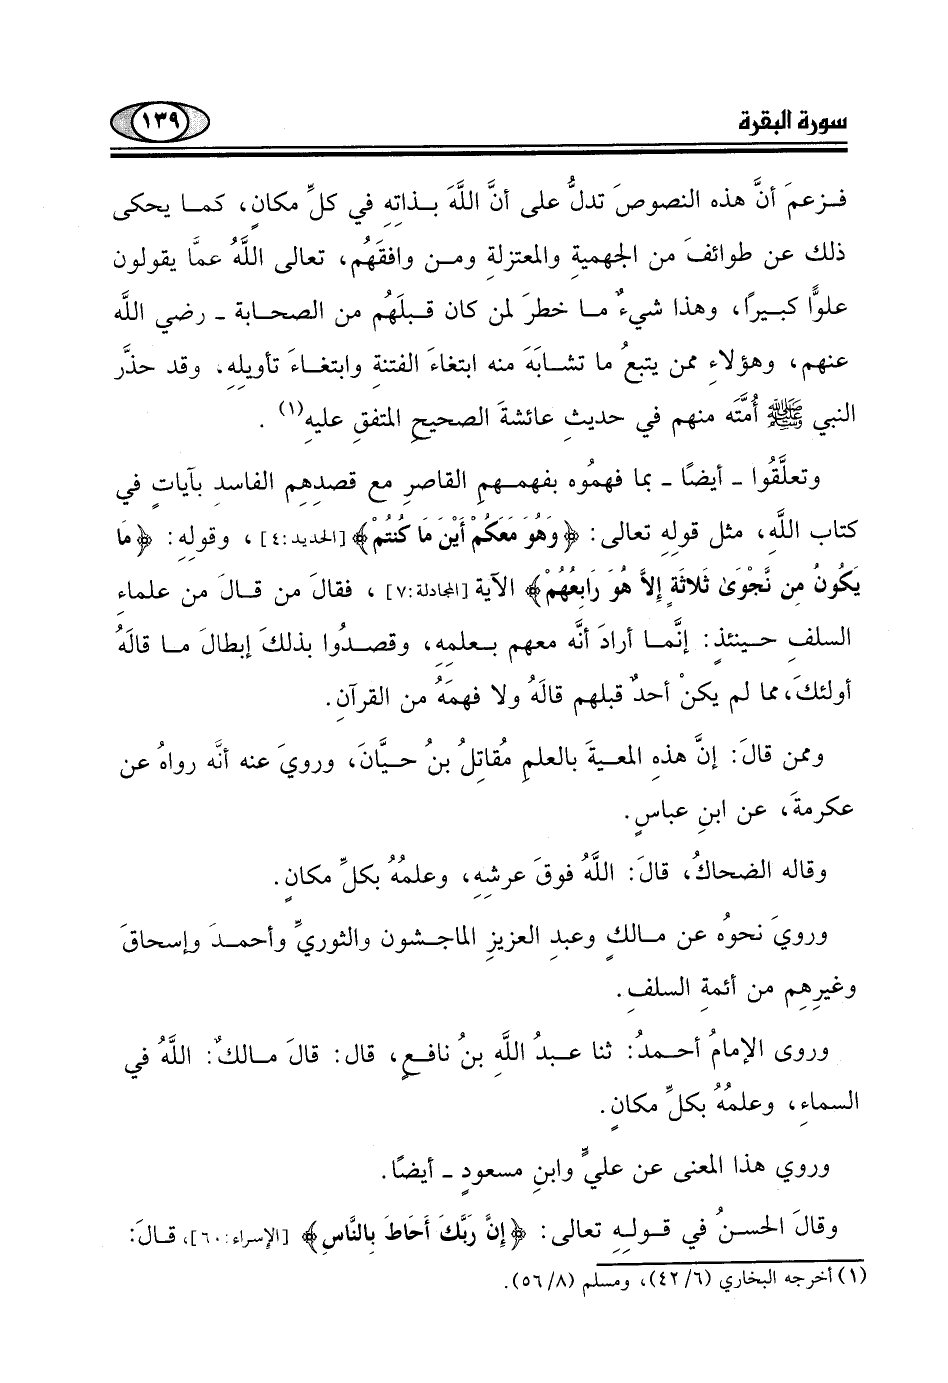 سورة البقرة
١٣٩
فـزعمَ أنَّ هذه النصوصَ تدلُّ على أنَّ اللَّهَ بـذاتِهِ في كلِّ مكانٍ، كمـا يحكى
ذلك عن طوائفَ من الجهميةِ والمعتزلةِ ومـن وافقَهُم، تعالى اللَّهُ عمَّا يقولون
علوًّا كبـيرًا، وهذا شيءٌ مـا خطرَ لمن كان قـبلَهُم من الصحـابة ـ رضي الله
عنهم، وهؤلاءِ ممن يتبعُ ما تشـابَهَ منه ابتغاءَ الفتنة وابتغـاءَ تأويلِهِ. وقد حذَّر
النبي ﷺ أُمَّتَه منهم في حديثِ عائشةَ الصحيحِ المتفقِ عليهِ(١).
وتعلَّقُوا ـ أيضًا ـ بما فهمُوه بفهمـهمِ القاصرِ مع قصدِهم الفاسدِ بآياتٍ في
كتاب اللَّهِ، مثل قولِهِ تعالى: ﴿وَهُوَ مَعَكُمْ أَيْنَ مَا كُنتُمْ﴾ [الحديد:٤]، وقوله: ﴿مَا
يَكُونُ مِن نَّجْوَىٰ ثَلاثَةٍ إِلاَّ هُوَ رَابِعُهُمْ﴾ الآية [المجادلة:٧]، فقالَ من قـالَ من علماءِ
السلفِ حـينئذٍ: إنَّمـا أرادَ أنَّه معهم بـعلمِهِ، وقصـدُوا بذلكَ إبطالَ مـا قالَهُ
أولئكَ، مما لم يكنْ أحدٌ قبلهم قالَهُ ولا فهمَهُ من القرآنِ.
وممن قالَ: إنَّ هذه المعـيةَ بالعلمِ مُقاتلُ بنُ حـيَّان، ورويَ عنه أنَّه رواهُ عن
عكرمةَ، عن ابنِ عباسٍ.
وقاله الضحاكُ، قالَ: اللَّهُ فوقَ عرشِهِ، وعلمُهُ بكلِّ مكانٍ.
ورويَ نحوُه عن مـالكٍ وعبدِ العزيزِ الماجـشون والثوريِّ وأحمـدَ وإسحاقَ
وغيرِهِم من أئمةِ السلفِ.
وروى الإمامُ أحـمدُ: ثنا عـبدُ اللَّهِ بنُ نافـعٍ، قال: قالَ مـالكٌ: اللَّهُ في
السماءِ، وعلمُهُ بكلِّ مكانٍ.
وروي هذا المعنى عن عليٍّ وابنِ مسعودٍ ـ أيضًا.
وقالَ الحسنُ في قـولِهِ تعالى: ﴿إِنَّ رَبَّكَ أَحَاطَ بِالنَّاسِ﴾ [الإسراء:٦٠]، قـالَ:
(١) أخرجه البخاري (٤٢/٦)، ومسلم (٥٦/٨).